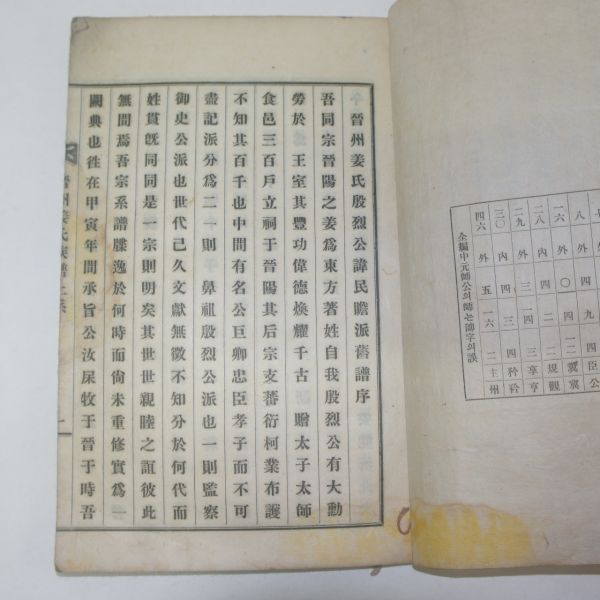 晉州姜氏殷烈公諱民瞻派舊譜序
吾同宗晉陽之姜爲東方著姓自我殷烈公有大勳
勞於 王室其豐功偉德煥耀千古 贈太子太師
食邑三百戶立祠于晉陽其后宗支蕃衍柯業布護
不知其百千也中間有名公巨卿忠臣孝子而不可
盡記派分爲二一則 鼻祖殷烈公派也一則監察
御史公派也世代己久文獻無徵不知分於何代而
姓貫旣同同是一宗則明矣其世世親睦之誼彼此
無間焉吾宗系譜牒逸於何時而尙未重修實爲一
闕典也徃在甲寅年間承旨公汝㞙牧于晉于時吾
晉州姜氏族譜上系 一
公
臣 四
冀 二 九 四 外 八
觀 規 二 〇 外 六
亨 享 四 四 內 二八
矜 矜 四 三 外 二九
內 三〇
州 主 二 六 五 外 四六
全編中元師公의師는帥字의誤